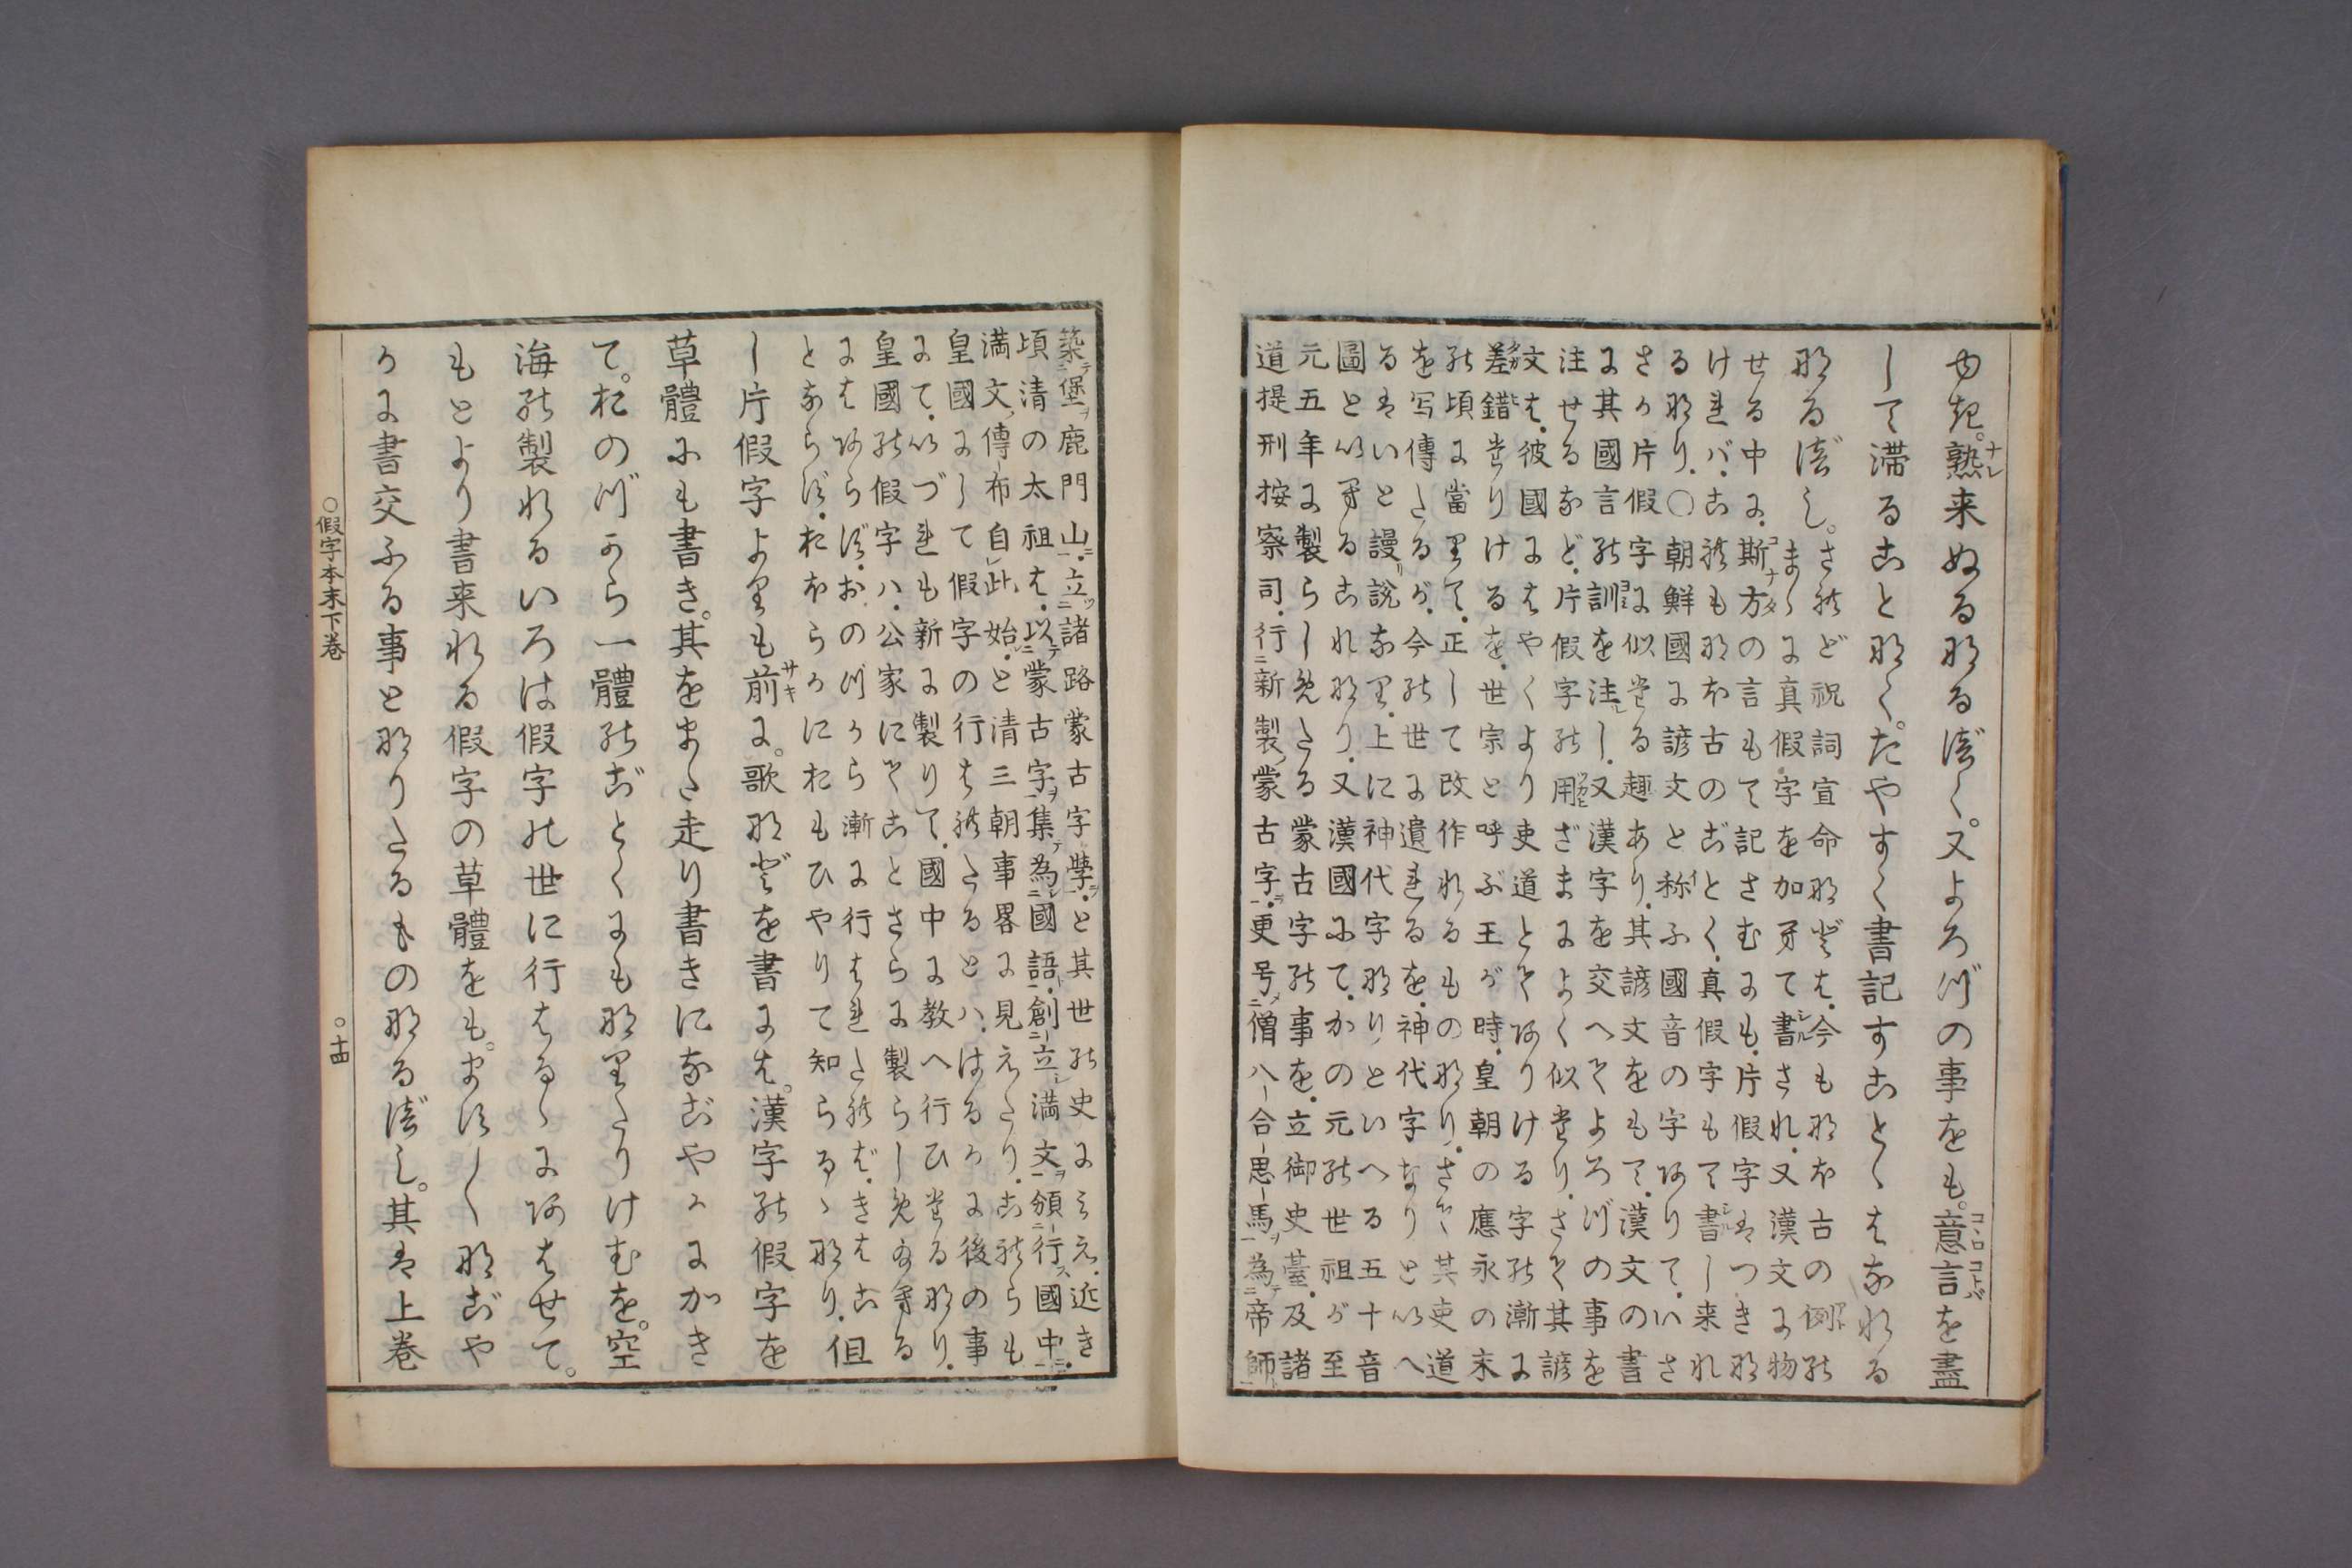 ゆき。熟来ぬるなるべく。又よろづの事をも。意言を盡
して滞ることなく。たやすく書記すことゝはなれる
なるべし。
されど祝詞宣命などは。今もなほ古の例の
まゝに真假字を加へて書され。又漢文に物
せる中に。斯方の言もて記さむにも。片假字はつきな
ければ。これもなほ古のごとく。真假字もて書し来れ
るなり。〇朝鮮國に諺文と称ふ國音の字ありて。いさ
さか片假字に似たる趣あり。其諺文をもて。漢文の書
に其國言の訓を注し。又漢字を交へてよろづの事を
注せるなど。片假字の用ざまによく似たり。さて其諺
文は。彼國にはやくより吏道とてありける字の漸に
差錯たりけるを。世宗と呼ぶ王が時。皇朝の應永の末
の頃に當りて。正して改作れるものなり。さて其吏道
を写傳たるが。今の世に遺れるを。神代字なりといへ
るはいと謾説なり。上に神代字なりといへる五十音
圖といへるこれなり。又漢國にて。かの元の世祖が至
元五年に製らしめたる蒙古字の事を。立御史臺。及諸
道提刑按察司。行新製蒙古字。更号僧八合思馬為帝師
築堡鹿門山。立諸路蒙古字學。と其世の史にみえ。近き
頃清の太祖は。以蒙古字集為國語。創立満文。頒行國中。
満文傳布自此始。と清三朝事畧に見えたり。これらも
皇國にして假字の行はれたるとハ。はるかに後の事
にて。いづれも新に製りて。國中に教へ行ひたるなり。
皇國の假字ハ。公家にてことさらに製らしめ給へる
にはあらず。おのづから漸に行はれたれば。きはこ
とならず。おほらかにおもひやりて知らるゝなり。但
し片假字よりも前に。歌などを書には。漢字の假字を
草體にも書き。其をまた走り書きになごやかにかき
て。おのづから一體のごとくにもなりたりけむを。空
海の製れるいろは假字の世に行はるゝにあはせて。
もとより書来れる假字の草體をも。ますますなごや
かに書交ふる事となりたるものなるべし。其は上巻
〇假字本末下巻
〇十四